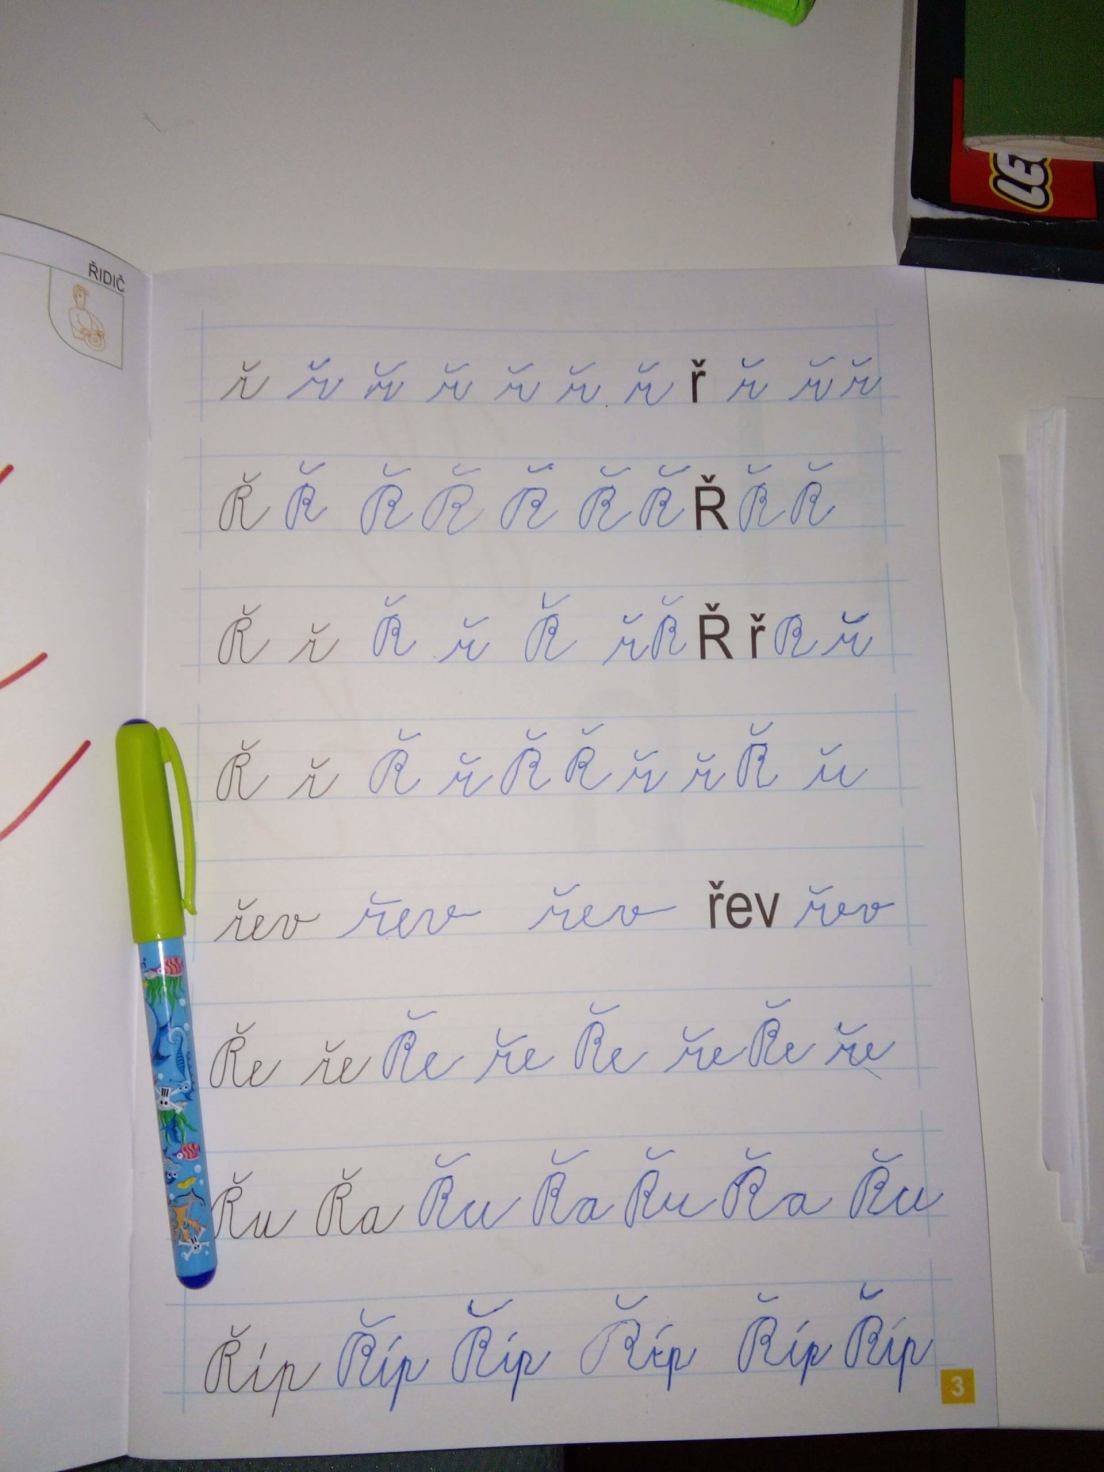 ŘIDIČ
LE
ř ř ř ř ř ř ř ř ř ř ř
Ř Ř Ř Ř Ř Ř Ř Ř Ř Ř
Ř ř Ř ř Ř ř Ř Ř ř Ř ř
Ř ř Ř ř Ř Ř ř ř Ř ř
řev řev řev řev řev
Ře ře Ře ře Ře ře Ře ře
Řu Řa Řu Řa Řu Řa Řu
Říp Říp Říp Říp Říp Říp
3